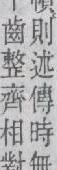 則述傳時無
齒整齊相對